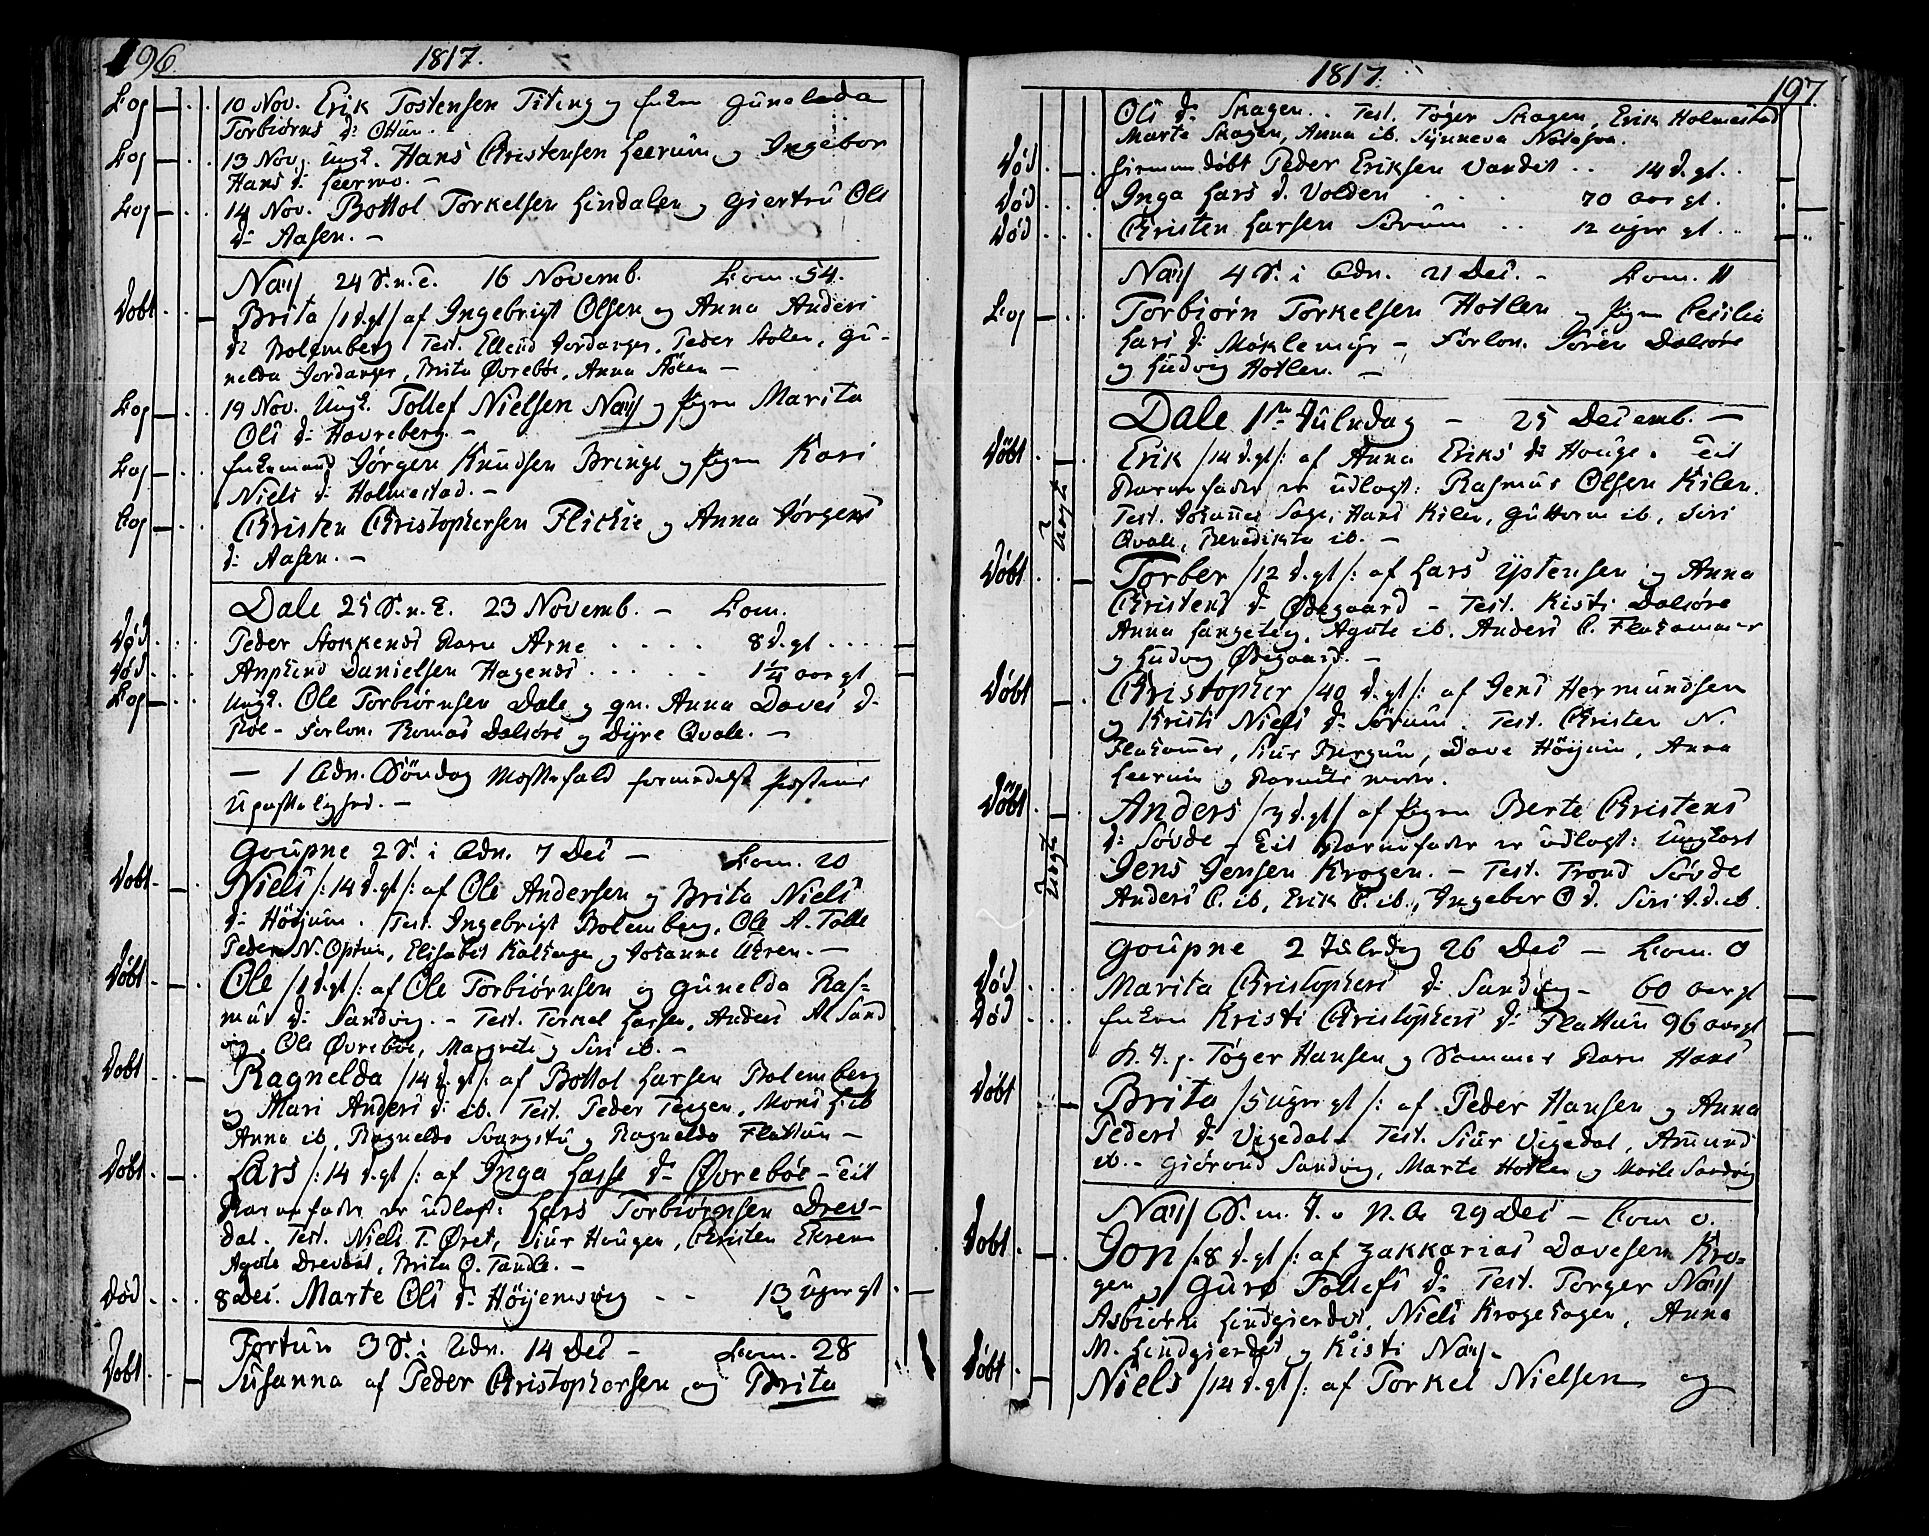 196 1817.
Cop 10 Nov. Erik Tostensen Titing og Enken Gunelda
Torbiørns d: Ottun.
Cop 13 Nov. Ungk. Hans Christensen Leerum og Ingebor
Hans d: Leermo. –
Cop 14 Nov. Bottol Torkelsen Lindalen og Giertru Ols
d: Aasen. –
Næss 24 S. n. T. 16 Novemb. Com. 54.
Døbt Brita /1 d. gl/ af Ingebrigt Olsen og Anna Anders
d: Bolemberg Test. Ellend Jordanger, Peder Molen, Gu-
nelda Jordanger, Brita Øvrebøe, Anna –
Cop 19 Nov. Ungk. Tollef Nielsen Næss og Pigen Marita
Ols d: Havreberg. –
Cop Enkemand Jørgen Knudsen Bringe og Pigen Kari
Niels d: Holmestad. –
Cop Christen Christophersen Flickie og Anna Jørgens
d: Aasen. –
Dale 25 S. n. T. 23 Novemb. – Com.
Død Peder Stokkens Barn Arne 8 d. gl
Død Danielsen Hagens 1¼ aar gl
Cop Ungk. Ole Torbiørnsen Dale og qv. Anna Daves d:
Røe – Forlov. Thomas Dalsøre og Dyre Qvale. –
– 1 Adv. Søndag Messefald formedelst Præstens
Upasselighed. –
Goupne 2 S. i Adv. 7 Dec – Com. 20
Døbt Niels /: 14 d. gl /: af Ole Andersen og Brita Niels
d: Høyum. Test. Ingebrigt Bolemberg, Ole A. Talle
Peder N. Optun, Elisabet og Johanne Ekren. –
Døbt Ole /1 d. gl /: af Ole Torbiørnsen og Gunelda Ras-
mus d: Sandvig. – Test. Torkel Larsen, Anders A. Sand
vig, Ole Øvrebøe, Margrete og Siri ib. –
Døbt Ragnelda /14 d. gl /: af Bottol Larsen Bolemberg
og Mari Anders d: ib. Test. Peder Teigen, Mons L. ib
Anna ib, Ragnelda og Ragnelda Flattun –
Døbt Lars /: 14 d. gl /: af Inga Lasse d: Øvrebøe – Til
Barnefader er udlagt: Lars Torbiørnsen Drev-
dal. Test. Niels T. Øret, Siur Hougen, Christen Ekren
Agote Drevdal, Brita O. Tandle. –
Død 8 Dec. Marte Ols d: Høyemsvig – – 13 uger gl
Fortun 3 S. i Adv. 14 Dec – Com. 28
Døbt Susanna af Peder Christophersen og Brita
1817. 197.
Ols d: Skagen. Test. Tøger Skagen, Erik Holmestad
Marte Skagen, Anna ib. Synneva
Død Hiemmedøbt Peder Eriksen Vandet 14 d. gl.
Død Inga Lars d. Volden 70 aar gl.
Død Christen Larsen Sørum 12 uger gl.
Næss 4 S. i Adv. 21 Dec. – Com. 11
Cop Torbiørn Torkelsen Hotlen og Pigen Cecilia
Lars d: Møklemyr – Forlov. Søren Dalsøre
og Ludvig Hotlen. –
Dale 1ste Juledag – 25 Decemb. –
Døbt Erik /14 d. gl/: af Anna Eriks d: Houge. Til
Uægt Barnefader er udlagt: Rasmus Olsen Kilen.
Test. Johannes Sage, Hans Kilen, Guttorm ib, Siri
Qvale, Benedikta ib. –
Døbt Torber /12 d. gl/: af Lars Ystensen og Anna
Christens d: Ødegaard – Test. Kisti Dalsøre
Anna Langeteig, Agote ib. Anders C. Flahammer
og Ludvig Ødegaard. –
Døbt Christopher /40 d. gl/: af Jens Hermundsen
og Kristi Niels d: Sørum. Test. Christen N.
Flahammer, Siur Bergum, Dave Høyum, Anna
Leerum og Barnets moder.
Døbt Anders /3 d. gl/ af Pigen Berte Christens
Uægt d: Søvde – Til Barnefader er udlagt: Ungkarl
Jens Jensen Krogen. – Test. Trond Søvde
Anders C. ib, Erik C. ib., Ingebor O d. Siri J. d. ib.
Goupne 2 Juledag 26 Dec – Com. 0
Død Marita Christophers d: Sandvig – 60 aar gl
Død Enken Kristi Christophers d: Flattun 96 aar gl
Tøger Hansen og Sommer Barn Hans
Døbt Brita /5 uger gl /: af Peder Hansen og Anna
Peders d: Vigedal. Test. Siur Vigedal, Amund
ib. – Giørond Sandvig, Marte Hotlen og Marte Sandvig
Næss S. m. J. o N. A. 29 Dec – Com 0.
Døbt Jon /:8 d. gl/: af Zakkarias Davesen Kro-
gen og Guro Tollefs d: Test. Torger Næss
Asbiørn Lindgierdet, Niels Krogehagen, Anna
M. Lindgierdet og Kisti Næss.
Døbt Niels /14 d. gl/: af Torkel Nielsen og